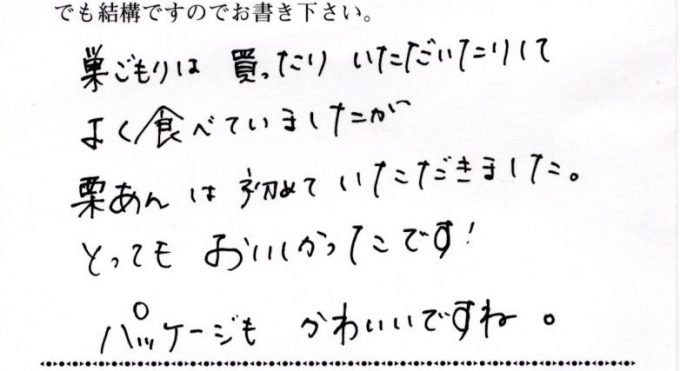 でも結構ですのでお書き下さい。
巣ごもりは 買ったり いただいたりして
よく食べていましたが
栗あんは 初めて いただきました。
とっても おいしかったです!
パッケージも かわいいですね。